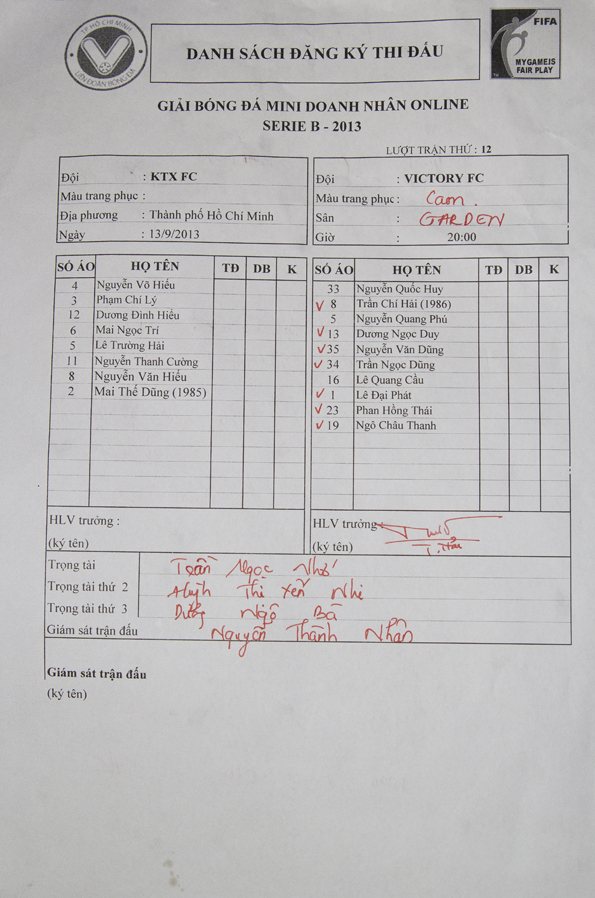 TP HỒ CHÍ MINH
LIÊN ĐOÀN BÓNG ĐÁ
DANH SÁCH ĐĂNG KÝ THI ĐẤU
FIFA
MYGAMEIS
FAIR PLAY
GIẢI BÓNG ĐÁ MINI DOANH NHÂN ONLINE
SERIE B - 2013
LƯỢT TRẬN THỨ : 12
Đội : KTX FC
Màu trang phục :
Địa phương : Thành phố Hồ Chí Minh
Ngày : 13/9/2013
Đội : VICTORY FC
Màu trang phục : Cam.
Sân : GARDEN
Giờ : 20:00
SỐ ÁO HỌ TÊN TĐ DB K
4 Nguyễn Võ Hiếu
3 Phạm Chí Lý
12 Dương Đình Hiếu
6 Mai Ngọc Trí
5 Lê Trường Hải
11 Nguyễn Thanh Cường
8 Nguyễn Văn Hiếu
2 Mai Thế Dũng (1985)
SỐ ÁO HỌ TÊN TĐ DB K
33 Nguyễn Quốc Huy
✓ 8 Trần Chí Hải (1986)
5 Nguyễn Quang Phú
✓ 13 Dương Ngọc Duy
✓ 35 Nguyễn Văn Dũng
✓ 34 Trần Ngọc Dũng
16 Lê Quang Cầu
✓ 1 Lê Đại Phát
✓ 23 Phan Hồng Thái
✓ 19 Ngô Châu Thanh
HLV trưởng :
(ký tên)
HLV trưởng
(ký tên)
Trọng tài Trần Ngọc Nhớ
Trọng tài thứ 2 Huỳnh Thị Yến Nhi
Trọng tài thứ 3 Dương Ngô Bá
Giám sát trận đấu Nguyễn Thành Nhân
Giám sát trận đấu
(ký tên)